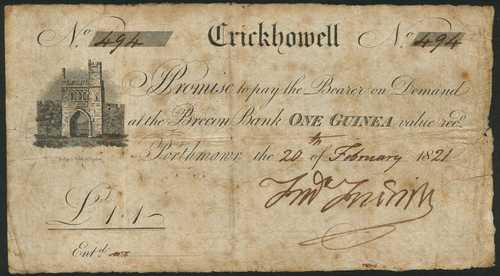 No 494 Crickhowell No 494
I Promise to pay the Bearer on Demand
at the Brecon Bank ONE GUINEA value recd.
Porthmawr, the 20th of February 1821
£1.1-
Entd.